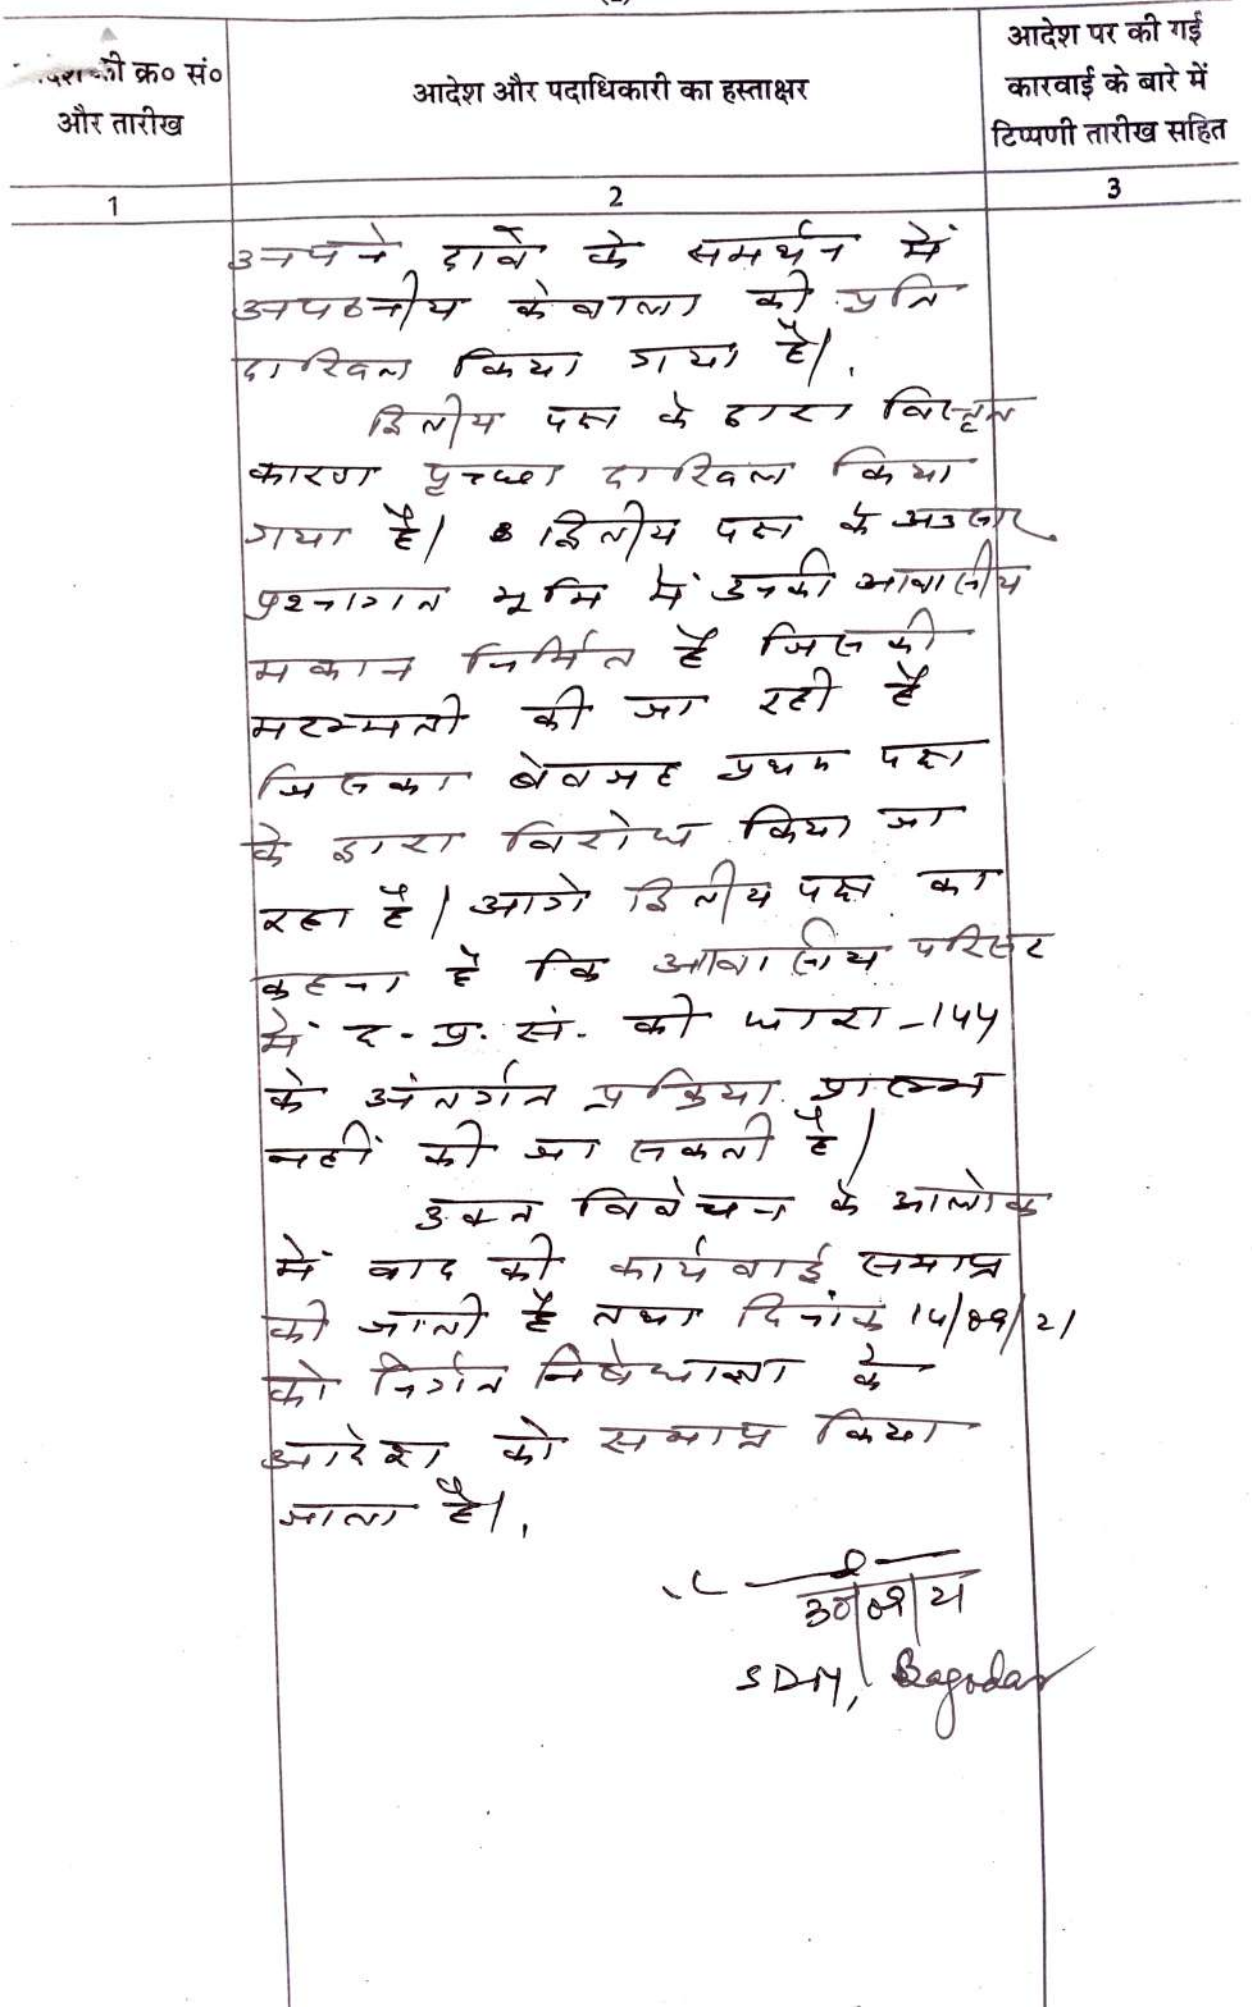 आदेश और पदाधिकारी का हस्ताक्षर
की क्र० सं०
और तारीख
आदेश पर की गई
कारवाई के बारे में
टिप्पणी तारीख सहित
1
2
3
अपने दावे के समर्थन में
अपठनीय केवाला की प्रति
दाखिल किया गया है।
द्वितीय पक्ष के द्वारा विस्तृत
कारण पृच्छा दाखिल किया
गया है। द्वितीय पक्ष के अनुसार
प्रश्नागत भूमि में उनकी आवासीय
मकान निर्मित है जिसकी
मरम्मती की जा रही है
जिसका बेवजह प्रथम पक्ष
के द्वारा विरोध किया जा
रहा है। आगे द्वितीय पक्ष का
कहना है कि आवासीय परिसर
में द. प्र. सं. की धारा-144
के अंतर्गत प्रक्रिया प्रारम्भ
नहीं की जा सकती है।
उक्त विवेचन के आलोक
में वाद की कार्यवाई समाप्त
की जाती है तथा दिनांक 14/09/21
को निर्गत निषेधाज्ञा के
आदेश को समाप्त किया
जाता है।
SDM, Bagodar